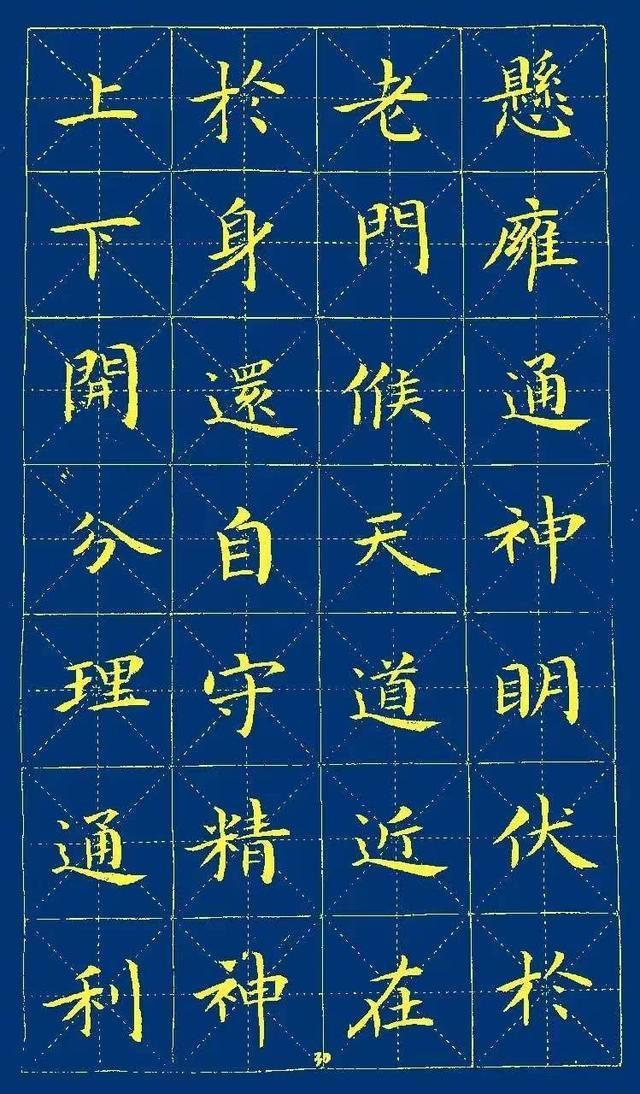 懸廱通神明伏於
老門候天道近在
於身還自守精神
上下開分理通利
30